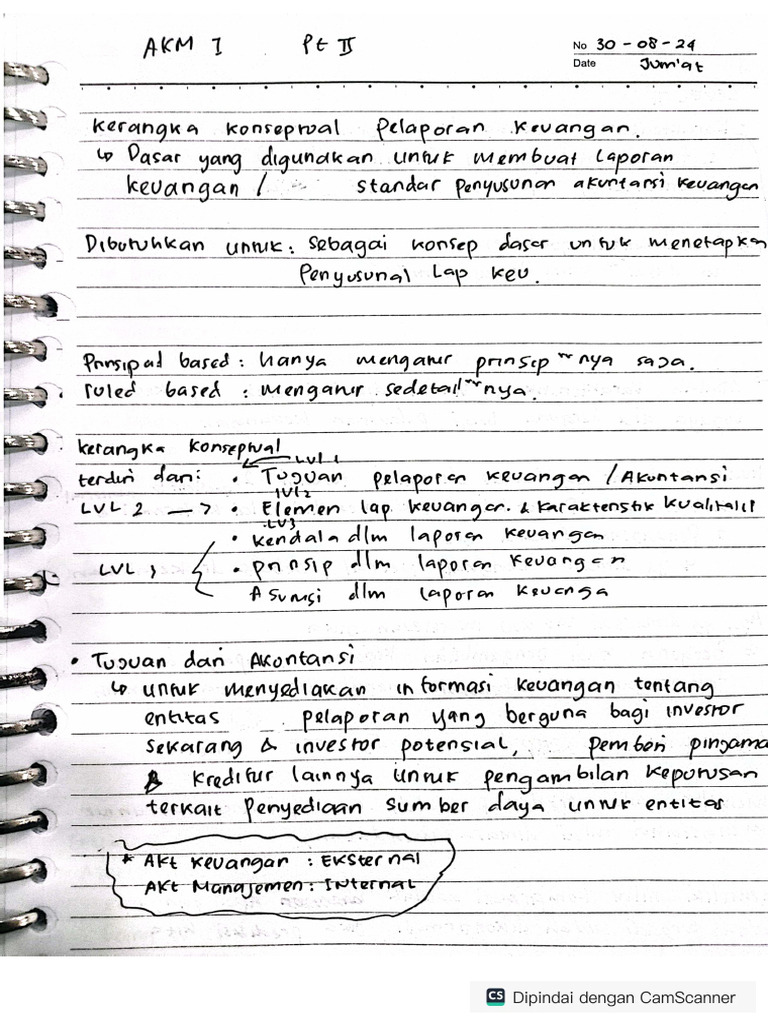 AKM I Pt II
No 30-08-24
Date Jum'at
Kerangka Konseptual Pelaporan Keuangan.
↳ Dasar yang digunakan untuk membuat Laporan
keuangan / standar penyusunan akuntansi keuangan
Dibutuhkan untuk: sebagai konsep dasar untuk menetapkan
Penyusunal Lap keu.
Prinsipal based : hanya mengatur prinsip "nya saja.
ruled based : mengatur sedetail "nya.
kerangka Konseptual
LVL 1
terdiri dari: • Tujuan pelaporan keuangan / Akuntansi
lvl2
LVL 2 —> • Elemen lap keuangan. & Karakteristik Kualitatif
LV3
• kendala dlm laporan keuangan
LVL 3 • prinsip dlm laporan keuangan
Asumsi dlm laporan keuanga
• Tujuan dari Akontansi
↳ untuk menyediakan informasi keuangan tentang
entitas pelaporan yang berguna bagi investor
sekarang & investor potensial, pemberi pinjama
& kreditur lainnya untuk pengambilan keputusan
terkait penyediaan sumber daya untuk entitas
* Akt Keuangan : EKSternal
AKt Manajemen : INternal
CS Dipindai dengan CamScanner